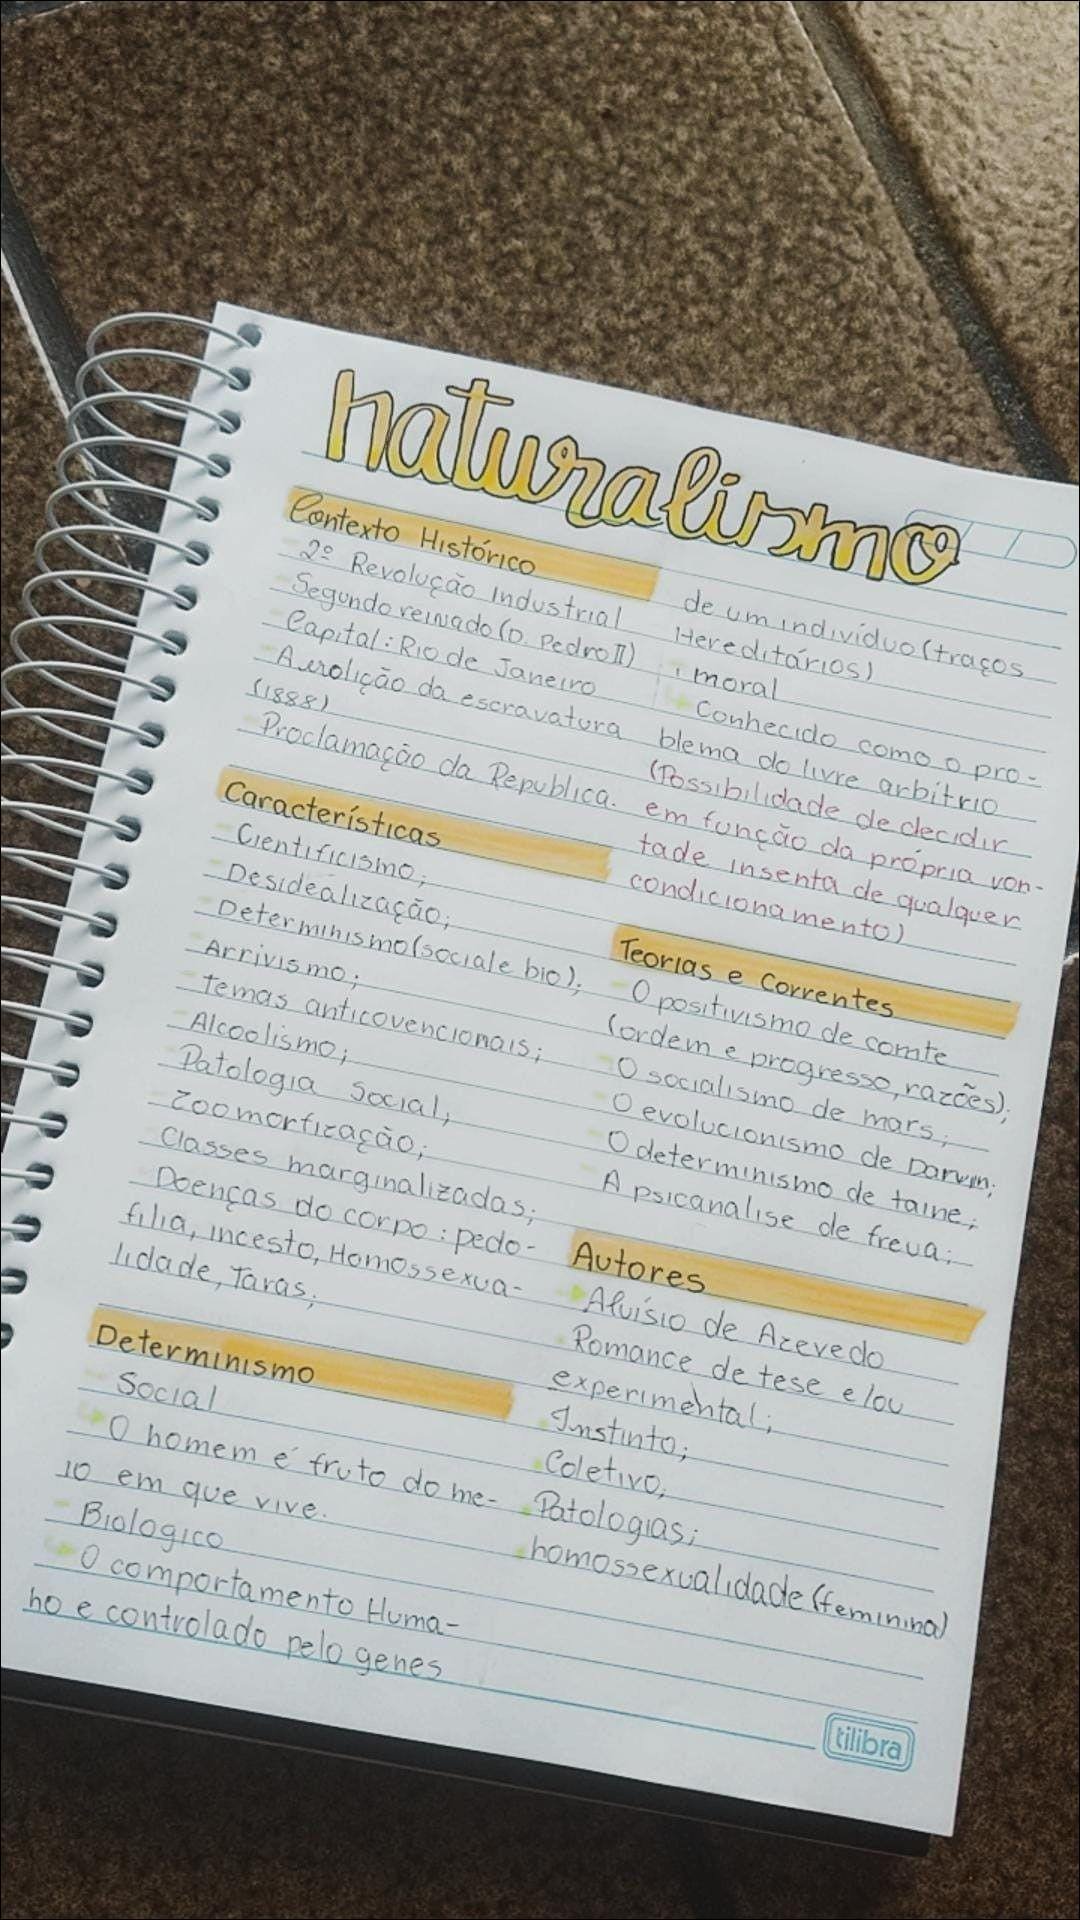 naturalismo
Contexto Histórico
2º Revolução Industrial
Segundo reinado (D. Pedro II)
Capital: Rio de Janeiro
da escravatura
(1888)
Proclamação da Republica.
Características
Cientificismo;
Desidealização;
Determinismo (social e bio);
Arrivismo;
temas anticovencionais;
Alcoolismo;
Patologia Social;
Zoomorfização;
Classes marginalizadas;
Doenças do corpo: pedo-
filia, incesto, Homossexua-
lidade, Taras;
Determinismo
Social
O homem é fruto do me-
io em que vive.
Biologico
O comportamento Huma-
no e controlado pelo genes
de um indivíduo (traços
Hereditários)
moral
Conhecido como o pro-
blema do livre arbitrio
(Possibilidade de decidir
em função da própria von-
tade insenta de qualquer
condicionamento)
Teorias e Correntes
O positivismo de comte
(ordem e progresso, razões);
O socialismo de mars;
O evolucionismo de Darwin;
O determinismo de taine;
A psicanalise de freua;
Autores
Aluísio de Azevedo
Romance de tese e/ou
experimental;
Instinto;
Coletivo;
Patologias;
homossexualidade (feminina)
tilibra